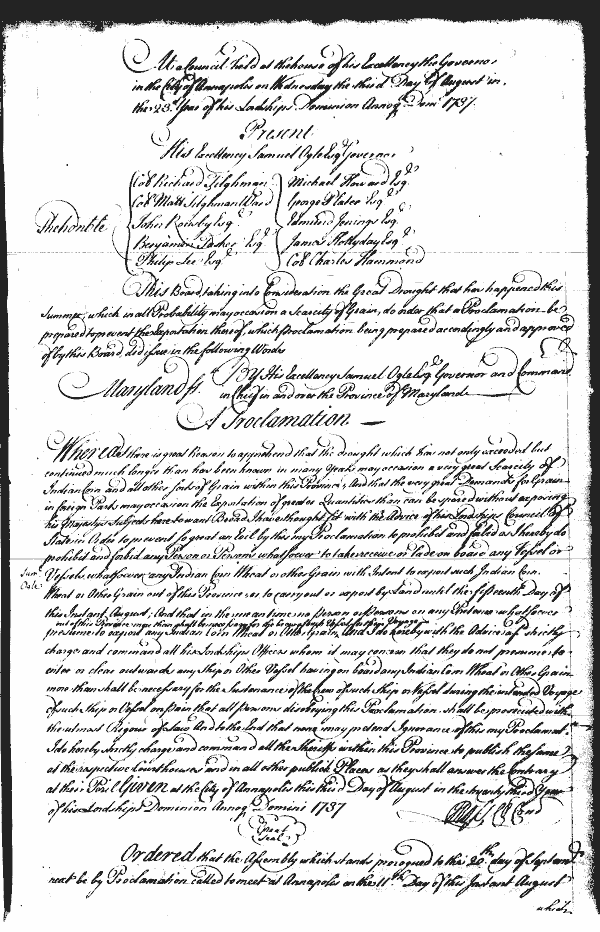 At a Council held at the house of his Excellency the Governor
in the City of Annapolis on Wednesday the third Day of August in
the 23d Year of his Lordships Dominion Annoq Domi 1737.
Present
His Excellency Samuel Ogle Esqr Governor
The honble
Col Richard Tilghman
Col Matt Tilghman Ward
John Rousby Esqr
Benjamin Tasker Esqr
Philip Lee Esqr
Michael Howard Esqr
George Plater Esqr
Edmund Jenings Esqr
James Hollyday Esqr
Col Charles Hammond
This Board, taking into Consideration the Great Drought that has happened this
Summer, which in all Probability may occasion a Scarcity of Grain, do order that a Proclamation be
prepared to prevent the Exportation thereof, which Proclamation being prepared accordingly and approved
of by this Board, did issue in the following Words
Maryland ss.
By His Excellency Samuel Ogle Esqr Governor and Commandr
in Chief in and over the Province of Maryland
A Proclamation
Whereas there is great Reason to apprehend that the drought which has not only exceeded but
continued much longer than has been known in many Years may occasion a very great Scarcity of
Indian Corn and all other sorts of Grain within this Province, And that the very great Demands for Grain
in foreign Parts may occasion the Exportation of greater Quantities than can be spared without exposing
his Majestys Subjects here to want Bread I have thought fit with the Advice of his Lordships Council of
State in Order to prevent so great an Evil by this my Proclamation to prohibit and forbid as I hereby do
prohibit and forbid any Person or Persons whatsoever to take receive or lade on board any Vessel or
Vessels whatsoever any Indian Corn Wheat or other Grain with Intent to export such Indian Corn
Wheat or Other Grain out of this Province or to carry out or export by Land until the fifteenth Day of
this Instant August, And that in the mean time no person or persons on any Pretence whatsoever
out of this Province more than shall be necessary for the
presume to export any Indian Corn Wheat or Other Grain, And I do hereby with the Advice aforesd strictly
charge and command all his Lordships Officers whom it may concern that they do not presume to
enter or clear outwards any Ship or Other Vessel having on board any Indian Corn Wheat or Other Grain
more than shall be necessary for the Sustenance of the Crew of such Ship or Vessel during the intended Voyage
of such Ship or Vessel on pain that all persons disobeying this Proclamation shall be prosecuted with
the utmost Rigour of Law And to the End that none may pretend Ignorance of this my Proclamat.
I do hereby strictly charge and command all the Sheriffs within this Province to publish the same
at the respective Court houses and in all other publick Places as they shall answer the Contrary
at their Peril Given at the City of Annapolis this third Day of August in the twenty third Year
of his Lordships Dominion Annoq Domini 1737
Great
Seal
Ordered that the Assembly which stands prorogued to the 20th day of Septemr
next be by Proclamation called to meet at Annapolis on the 11th Day of this Instant August
which